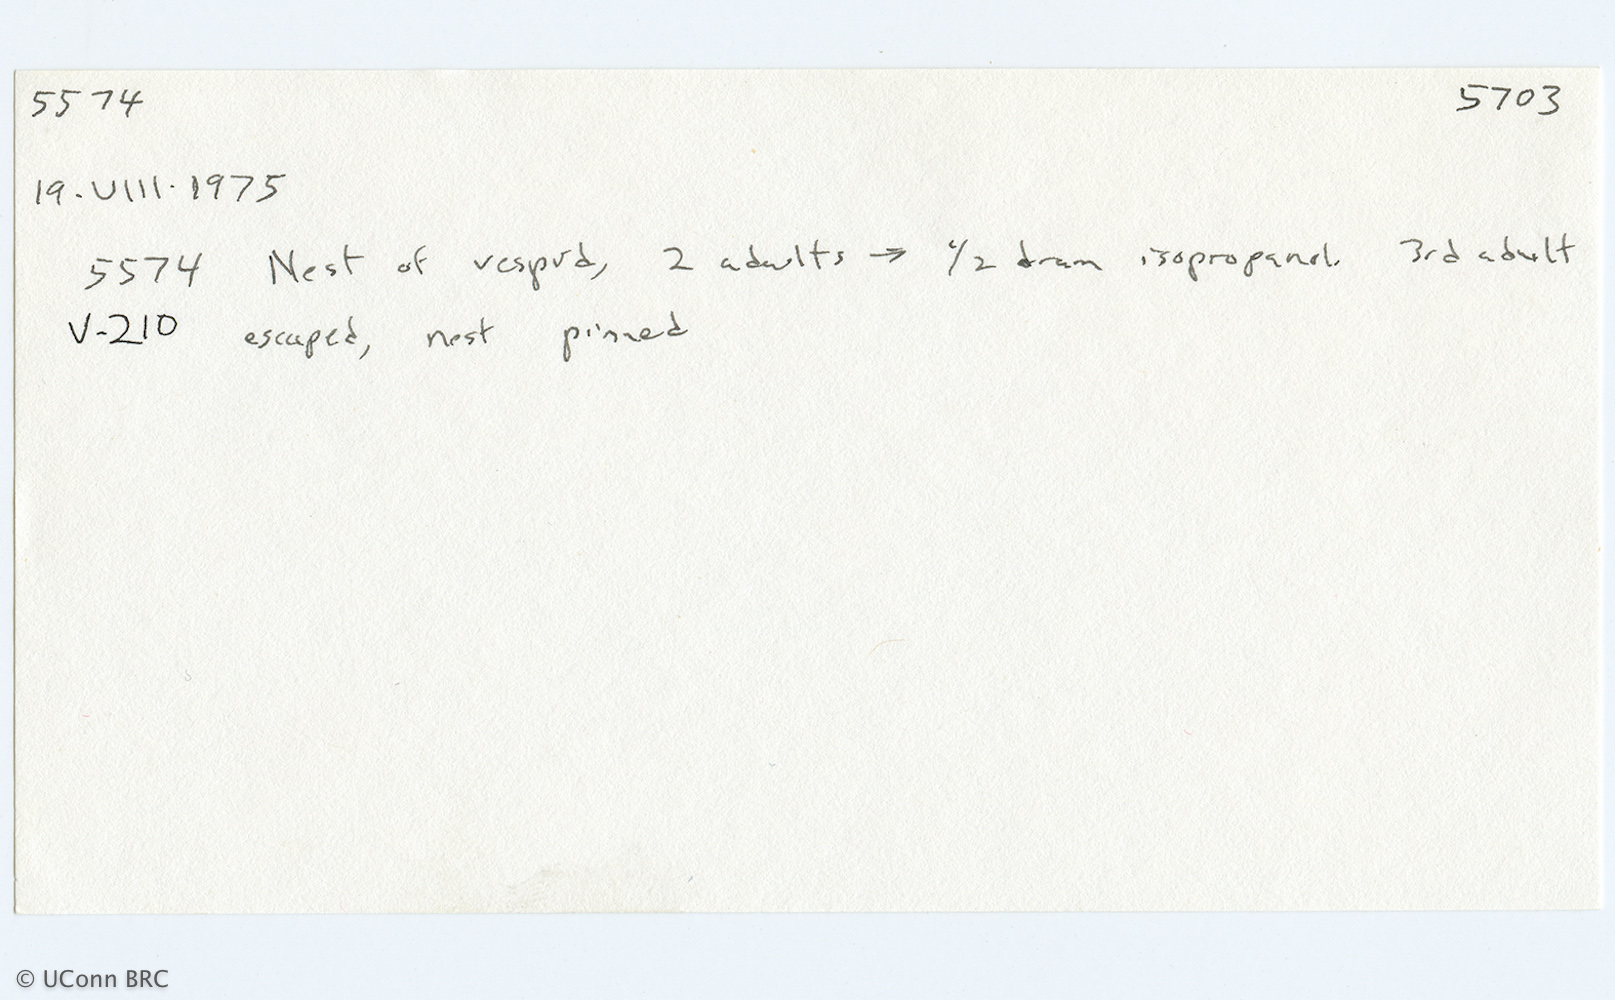 5574 5703
19.VIII.1975
5574 Nest of vespid, 2 adults → 1/2 dram isopropanol. 3rd adult
V-210 escaped, nest pinned
© UConn BRC